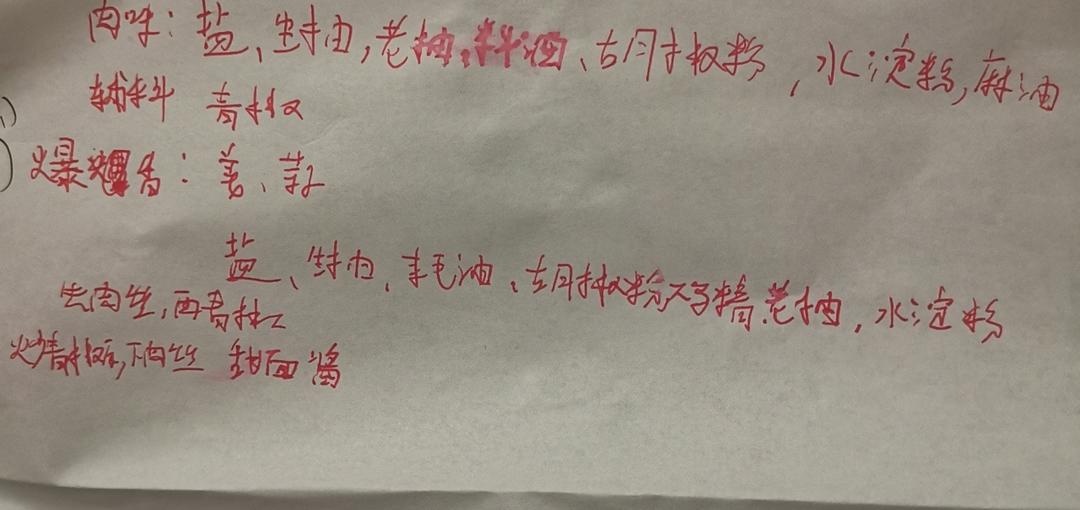 肉味：盐、生抽，老抽，料酒、胡椒粉，水淀粉，麻油
辅料 青椒
爆香：姜、蒜
盐、生抽、耗油、胡椒粉、糖、老抽，水淀粉
先肉丝，再青椒
炒青椒，下肉丝 甜面酱